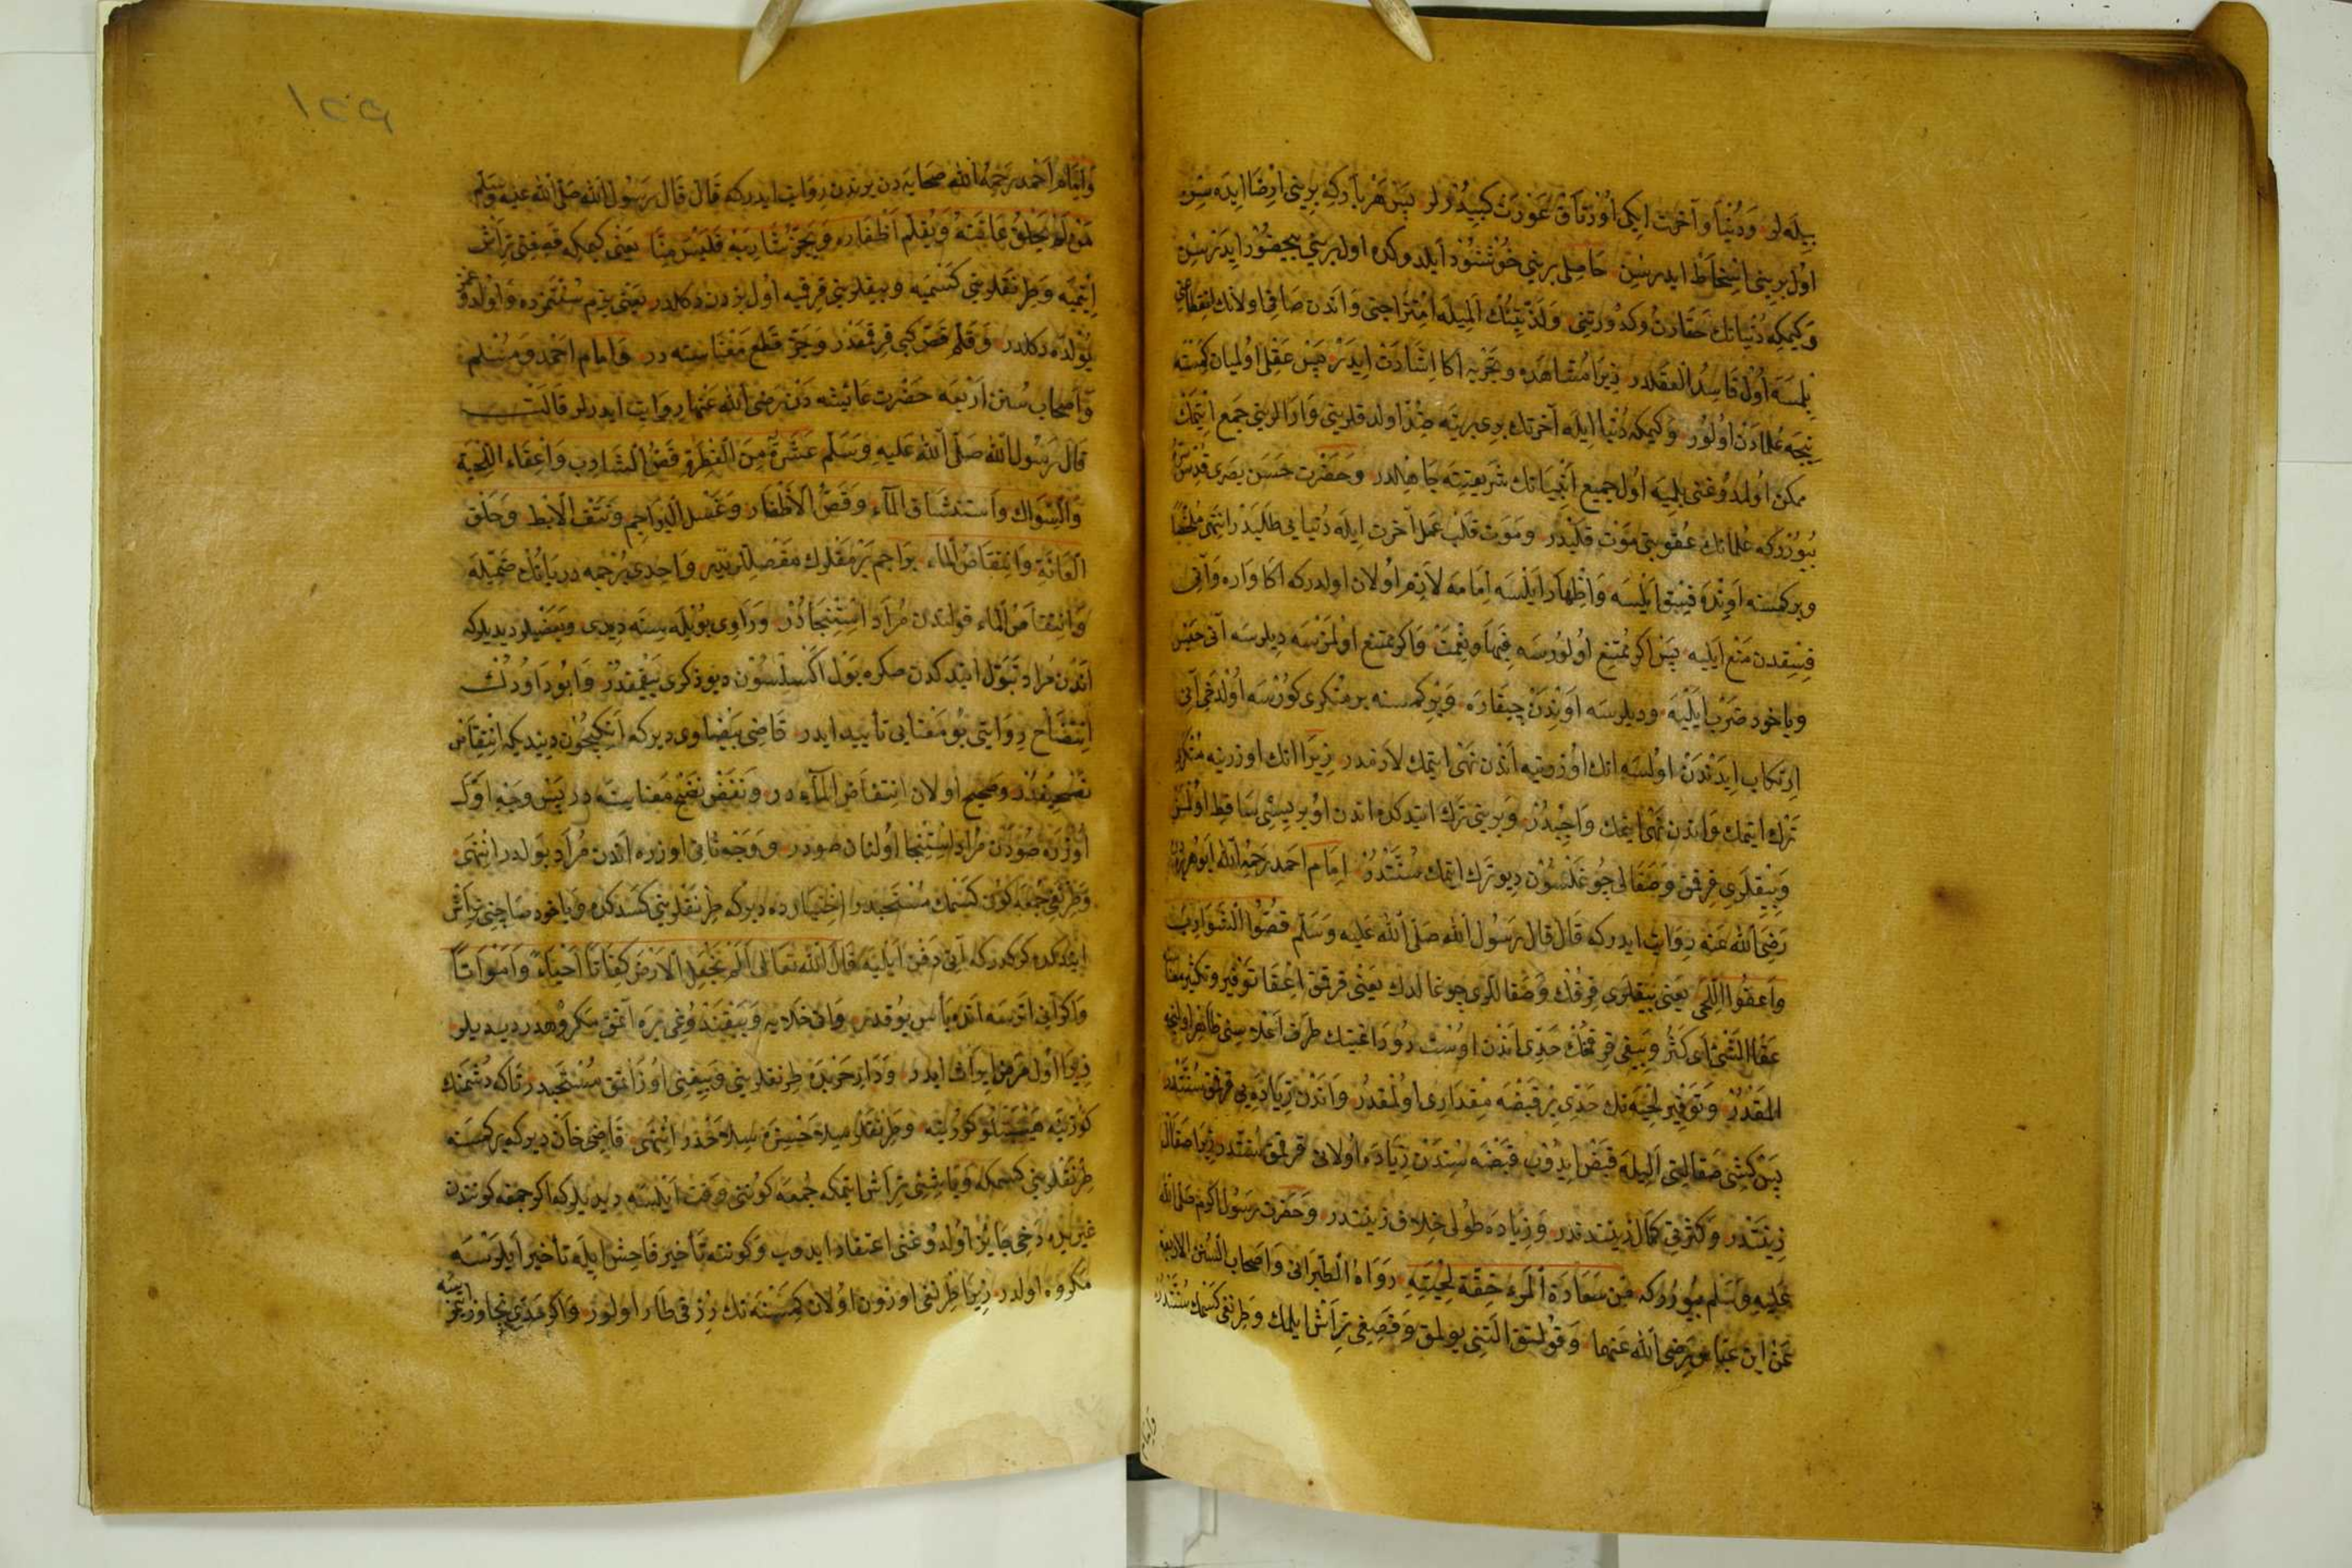 بيله لر وَدُنْيَا وَآخرت ايكى اورتاق عورت كبيدرلر پس هر بار كه برينى ارضا ايده سن
اول برينى اسخاط ايدرسن حاصلى برينى خوشنود ايلدوكده اول برينى بيحضور ايدرسن
وكيمكه دنيانك حقارت وكدورتنى ولذتنك الميله امتزاجنى واندن صافى اولانك انقطاعنى
بلمسه اول فاسد العقلدر زيرا مشاهده وتجربه اكا ارشاد ايدر پس عقلى اوليان كمسنه
نيجه علمادن اولور وكيمكه دنيا ايله آخرتك برى برينه ضد اولدقلرينى وارالرينى جمع ايتمك
ممكن اولمدوغنى بلميه اول جميع انبيانك شريعتنه جاهلدر وحضرت حسن بصرى قدس سره
بيوررکه علمانك عقوبتى موت قلبدر وموت قلب عمل آخرت ايله دنيايى طلبدر انتهى ملخصا
وبر كمسنه اونده فسق ايلسه واظهار ايلسه امامه لازم اولان اولدركه اكا واره وآنى
فسقدن منع ايليه پس اكر ممتنع اولورسه فبها ونعمت واكر ممتنع اولمزسه ديلرسه آنى حبس
وياخود ضرب ايليه وديلرسه اوندن چيقاره وبر كمسنه بر منكرى كورسه اولدخى آنى
ارتكاب ايدندن اولسه انك اوزرينه اندن نهى ايتمك لازمدر زيرا انك اوزرينه منكرى
ترك ايتمك واندن نهى ايتمك واجبدر وبرينى ترك ايتدكده اندن اوبريسى ساقط اولمز
وبيقلرى قرقمق وصقالى چوغلسون ديو ترك ايتمك سنتدر امام احمد رحمه الله ابو هريره
رضى الله عنه روايت ايدركه قال قال رسول الله صلى الله عليه وسلم قصوا الشوارب
واعفوا اللحى يعنى بيقلرى قرقك وصقاللرى چوغالدك يعنى قرقمق اعفا توفير وتكثير معناسنه
عفا الشئ اى كثر وبيقى قرقمنك حدى اندن اوست دوداغينك طرف اعلاسى ظاهر اولنجه
المقدر وتوفير لحيه نك حدى بر قبضه مقدارى اولمقدر واندن زياده يى قرقمق سنتدر
پس كشى صقالنى اليله قبض ايدوب قبضه سندن زياده اولانى قرقمق سنتدر زيرا صقال
زينتدر وكثرتى كمال زينتدندر وزياده طولى خلاف زينتدر وحضرت رسول اكرم صلى الله
عليه وسلم بيوررکه من سعادة المرء خفة لحيته رواه الطبرانى واصحاب السنن الاربعة
عن ابن عباس رضى الله عنهما وقولتق التنى يولمق وقصيغى تراش ايلمك وطرنغى كسمك سنتدر
وامام
١٥٩
وامام احمد رحمه الله صحابه دن بريندن روايت ايدركه قال قال رسول الله صلى الله عليه وسلم
من لم يحلق عانته ويقلم اظفاره ويجز شاربه فليس منا يعنى كيمكه قصغنى تراش
ايتميه وطرنقلرينى كسميه وبيقلرينى قرقميه اول بزدن دكلدر يعنى بزم سنتمزده واولدوغمز
يولده دكلدر وقلم قص كبى قرقمقدر وجز قطع معناسنه در وامام احمد ومسلم
واصحاب سنن اربعه حضرت عائشه دن رضى الله عنها روايت ايدرلر قالت
قال رسول الله صلى الله عليه وسلم عشرة من الفطرة قص الشارب واعفاء اللحية
والسواك واستنشاق الماء وقص الاظفار وغسل البراجم ونتف الابط وحلق
العانة وانتقاص الماء براجم برمقلرك مفصللريدر واحدى برجمه در بانك ضميله
وانتقاص الماء قولندن مراد استنجادر وراوى بويله سنه ديدى وبعضيلر ديديلركه
اندن مراد تبول ايتدكدن صكره بول اكسلسون ديو ذكرى ييقمقدر وابوداودك
انتضاح روايتى بو معنايى تأييد ايدر قاضى بيضاوى ديركه انكيچون ديندیكه انتقاص
تصحيفدر وصحيح اولان انتفاض الماء در ونفض نضح معناسنه در پس وجه اول
اوزره صودن مراد استنجا اولنان صودر ووجه ثانى اوزره اندن مراد بولدر انتهى
وطرنغى جمعه كونى كسمك مستحبدر اختيارده ديركه طرنقلرينى كسدكده وياخود صاچنى تراش
ايتدكده كركدركه آنى دفن ايليه قال الله تعالى الم نجعل الارض كفاتا احياء وامواتا
واكر آنى اترسه انده بأس يوقدر وانى خلايه وييقندوغى يره آتمق مكروهدر ديديلر
زيرا اول مرض ايراث ايدر ودار حربده طرنقلرينى وبيغنى اوزاتمق مستحبدر تاكه دشمنك
كوزينه هيبتلو كورينه وطرنقلر سلاح جنسنه سلاحدر انتهى قاضى خان ديركه بر كمسنه
طرنقلرينى كسمكه وباشنى تراش ايتمكه جمعه كوننى وقت ايلسه ديديلركه اكر جمعه كوندن
غيريله دخى جائز اولدوغنى اعتقاد ايدوب وكوننه تأخير فاحش ايله تأخير ايلرسه
مكروه اولدر زيرا طرنغى اوزون اولان كمسنه نك رزقى طار اولور واكر حدى تجاوز ايتمز
ايسه